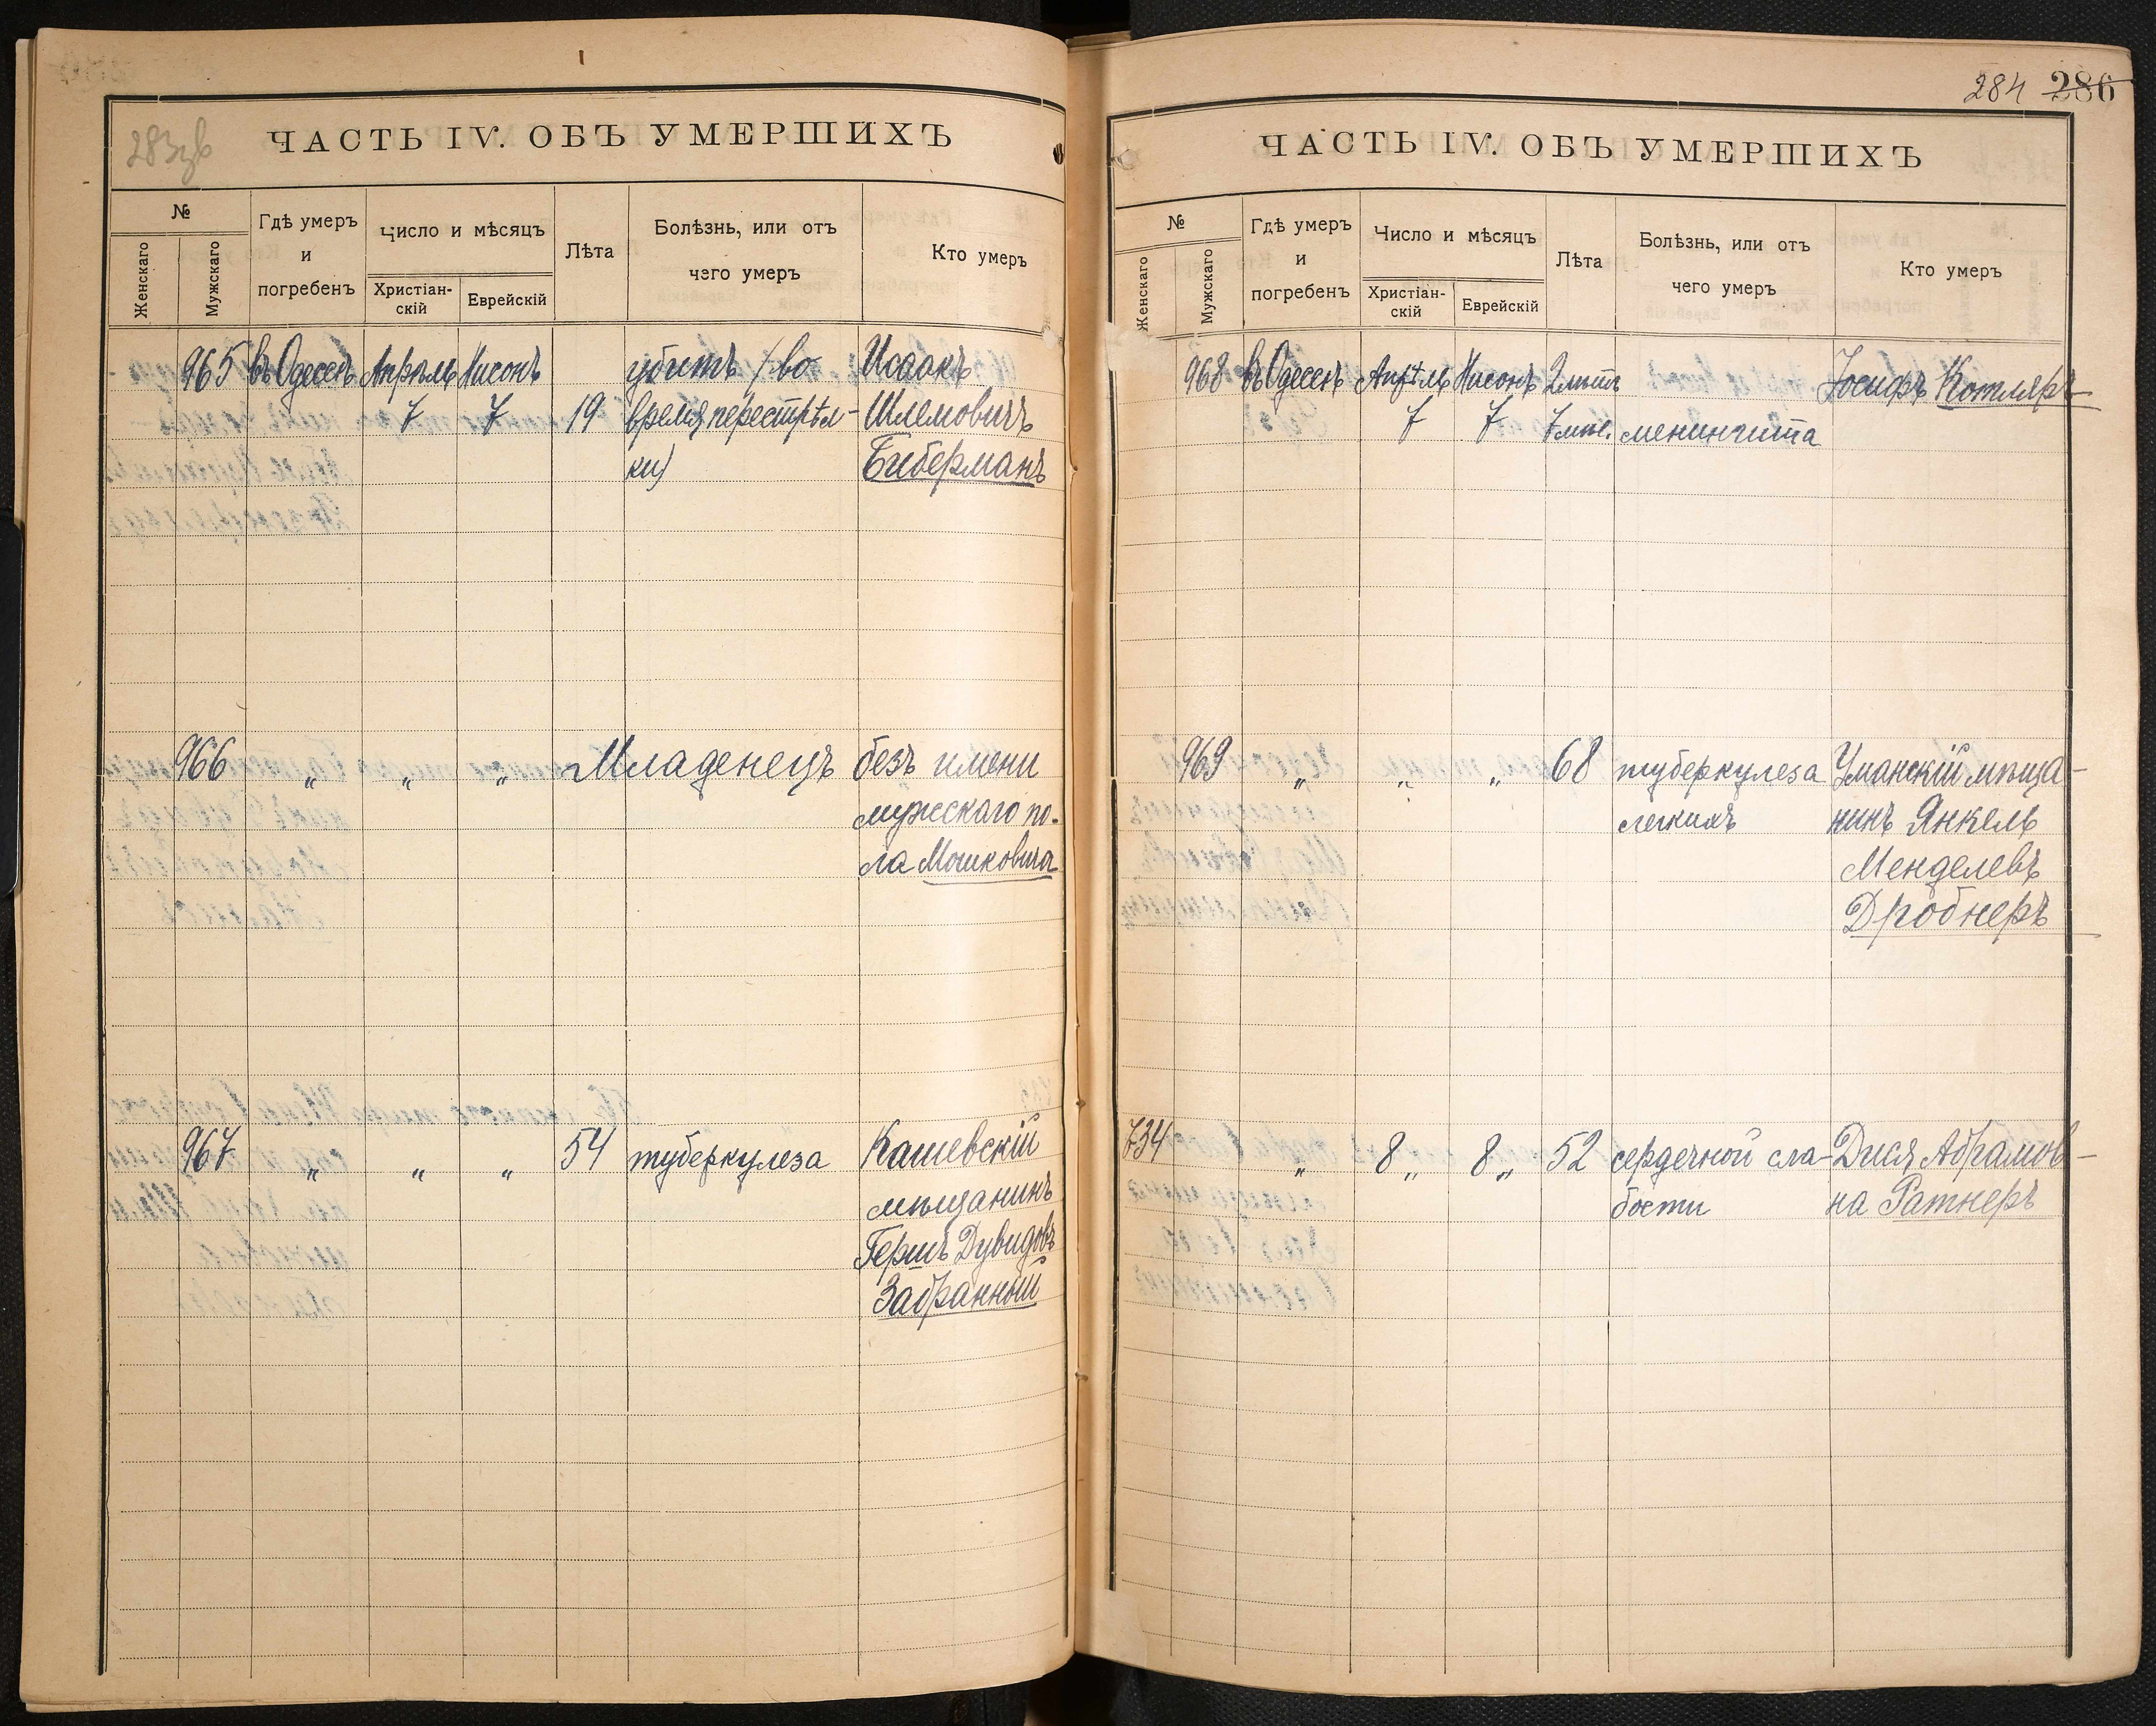 283об
ЧАСТЬ IV. ОБЪ УМЕРШИХЪ
№
Женскаго
Мужскаго
Гдѣ умеръ
и
погребенъ
Число и мѣсяцъ
Христіан-
скій
Еврейскій
Лѣта
Болѣзнь, или отъ
чего умеръ
Кто умеръ
965 въ Одессѣ Апрѣль Нисонъ убитъ /во Исаакъ
7 7 19 время перестрѣл- Шлемовичъ
ки) Биберманъ
966 " " " Младенецъ безъ имени
мужескаго по-
ла Мошковича
967 " " " 54 туберкулеза Кашевскій
мѣщанинъ
Гершъ Дувидовъ
Забранный
284 286
ЧАСТЬ IV. ОБЪ УМЕРШИХЪ
№
Женскаго
Мужскаго
Гдѣ умеръ
и
погребенъ
Число и мѣсяцъ
Христіан-
скій
Еврейскій
Лѣта
Болѣзнь, или отъ
чего умеръ
Кто умеръ
968 въ Одессѣ Апрѣль Нисонъ 2 лѣтъ Іосифъ Котляръ
7 7 7 мѣс. менингита
969 " " " 68 туберкулеза Уманскій мѣща-
легкихъ нинъ Янкель
Менделевъ
Дробнеръ
734 " 8 " 8 " 52 сердечной сла- Дися Абрамов-
бости на Ратнеръ